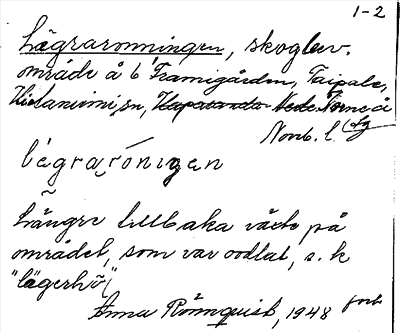 1-2
Lägraronningen, skoglev.
område å 6 Framigården, Taipale,
Hietaniemi sn, Haparanda Nede Torneå
Norrb. l.
lägraróningen
Längre tillbaka växte på
området, som var oodlat, s. k
"lägerhö"
Anna Rönnquist, 1948 forts